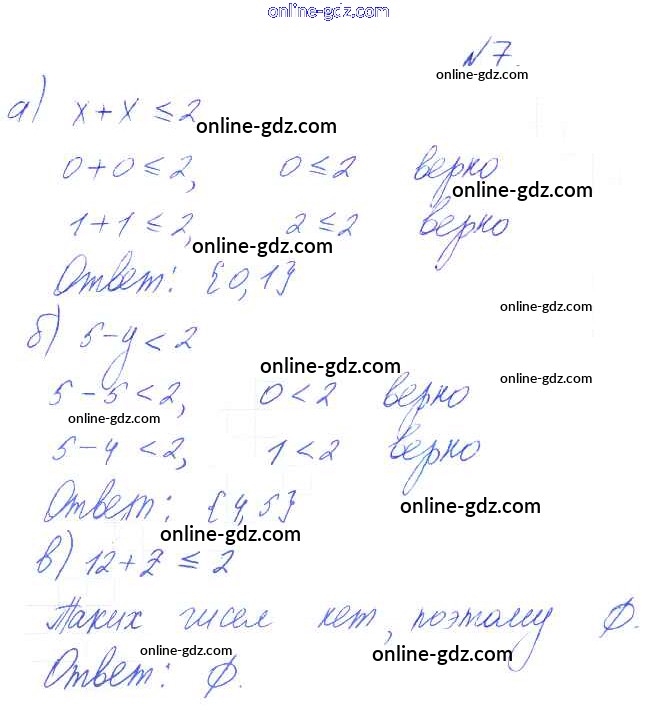 online-gdz.com
N7.
online-gdz.com
а) x + x ≤ 2
online-gdz.com
0 + 0 ≤ 2, 0 ≤ 2 верно
online-gdz.com
1 + 1 ≤ 2, 2 ≤ 2 верно
online-gdz.com
Ответ: {0, 1}
online-gdz.com
б) 5 - y < 2
online-gdz.com
online-gdz.com
5 - 5 < 2, 0 < 2 верно
online-gdz.com
5 - 4 < 2, 1 < 2 верно
Ответ: {4, 5}
online-gdz.com
online-gdz.com
в) 12 + z ≤ 2
Таких чисел нет, поэтому ∅.
online-gdz.com
online-gdz.com
Ответ: ∅.